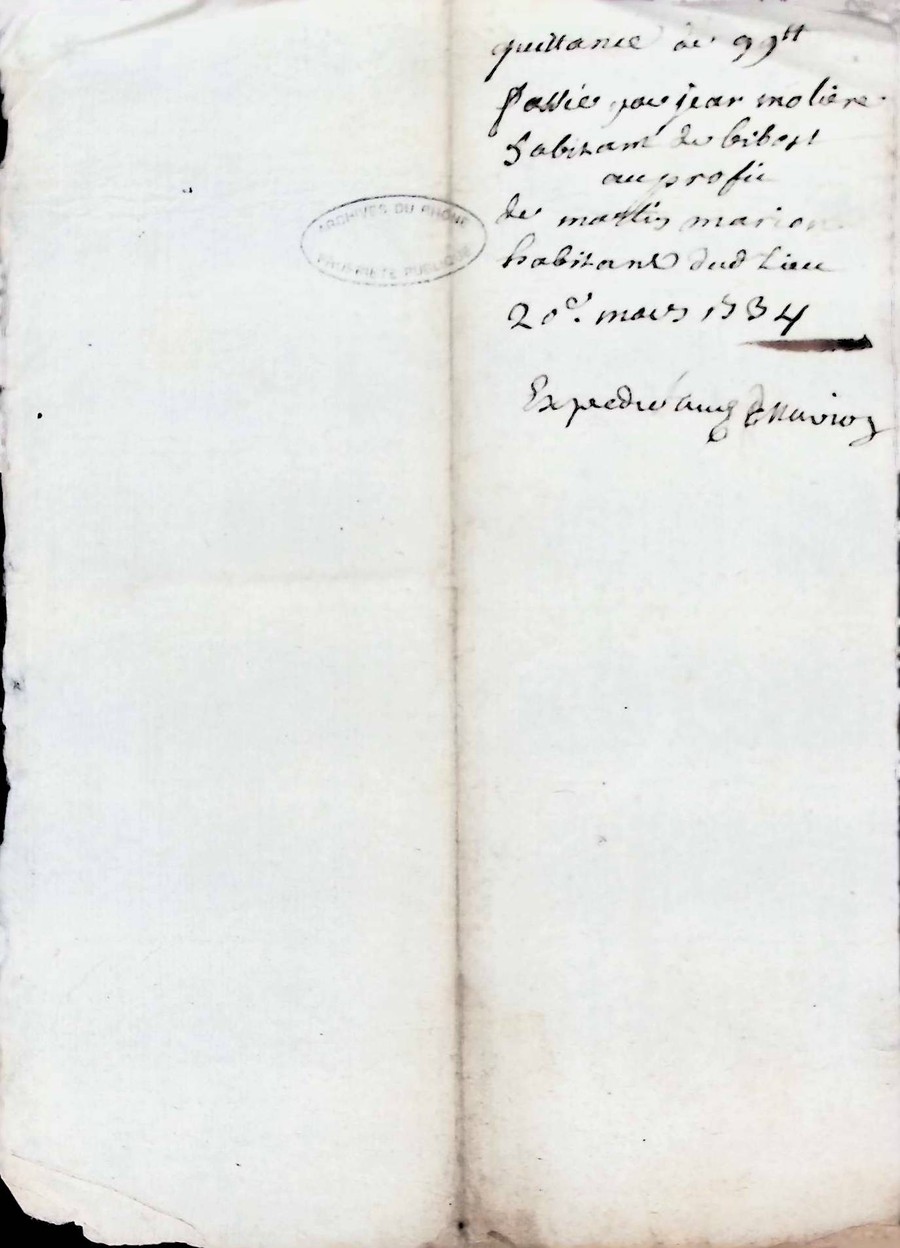 quittance de 99tt
passée par jean molière
habitant de bibost
au profit
de martin marion
habitant dud lieu
20e. mars 1734
Expedié aud marion
ARCHIVES DU RHÔNE
PROPRIÉTÉ PUBLIQUE